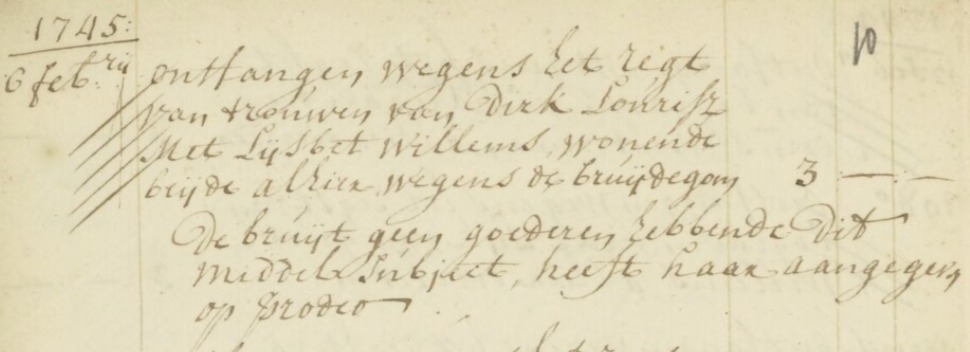 1745:
10
6 febrij ontfangen wegens het regt
van trouwen van Dirk Lourisz
Met Lijsbet Willems, wonende
beijde alhier, wegens de bruijdegom 3 —:—
De bruijt geen goederen hebbende dit
middel subject, heeft haar aangegeven
op prodeo